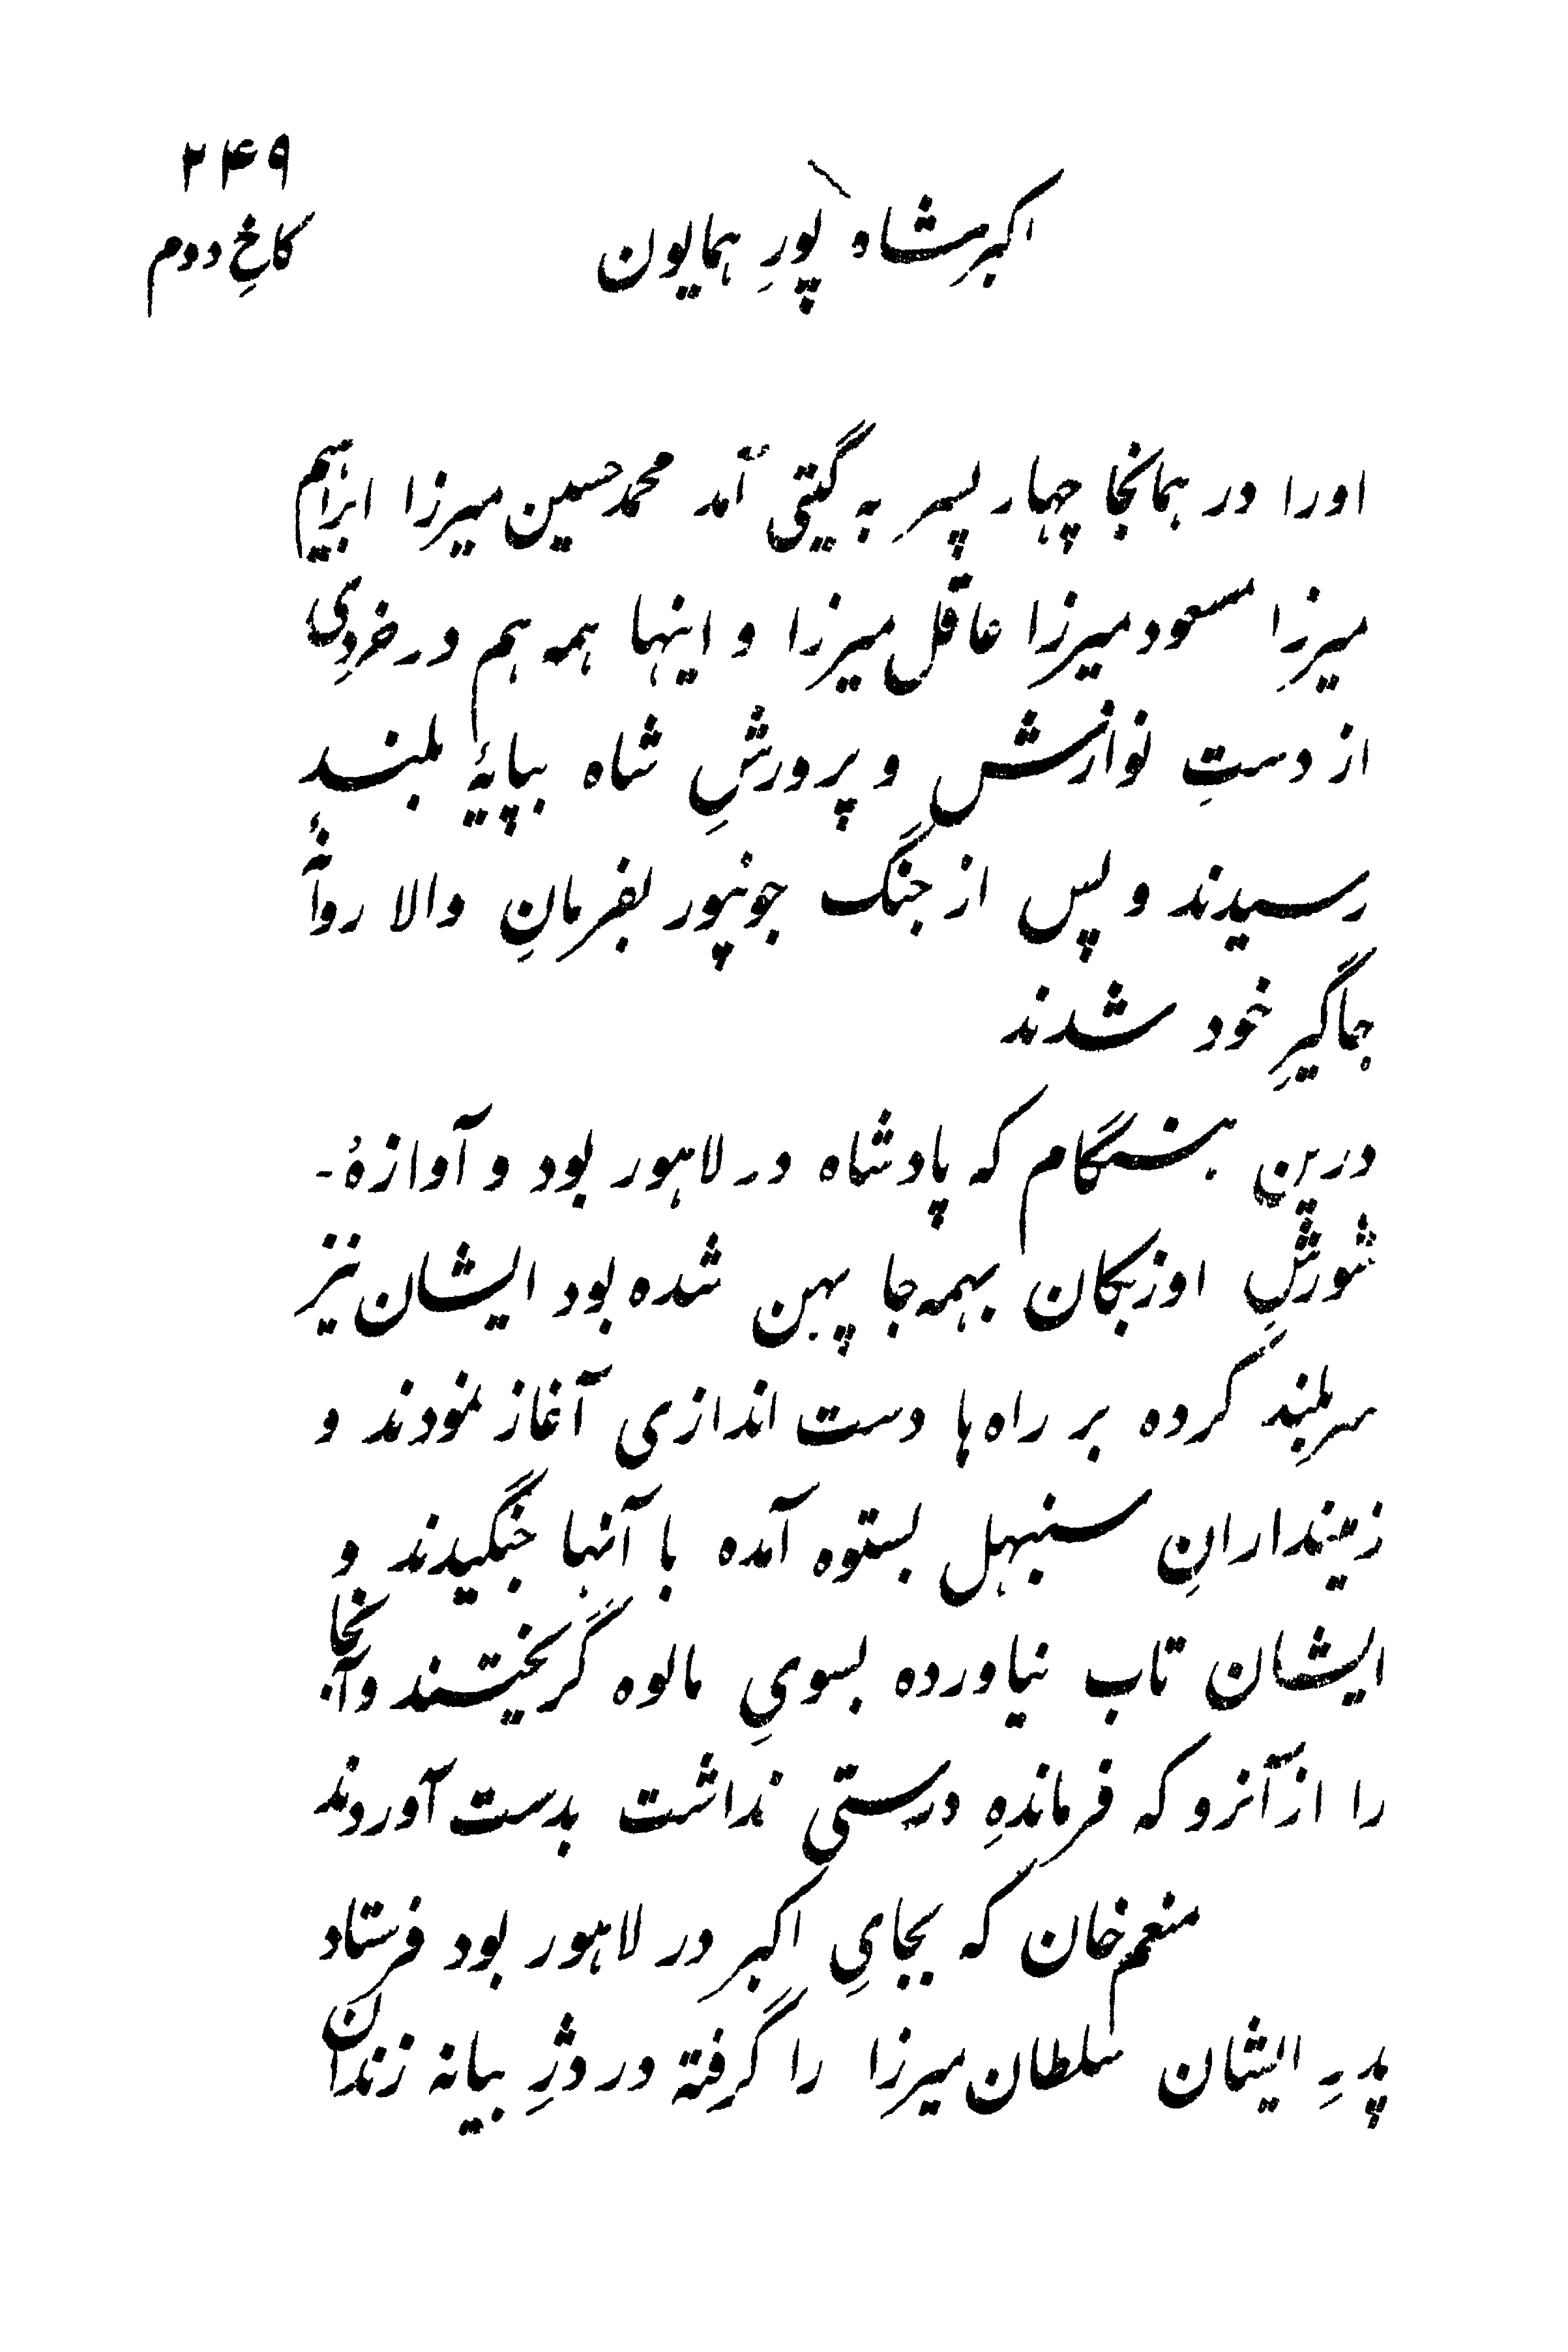 ۲۴۹
اکبرشاه پورِ همایون
کاخِ دوم
اورا در همانجا چهار پسر به گیتی آمد محمد حسین میرزا ابراهیم
میرزا مسعود میرزا عاقل میرزا و اینها همه هم در خردِی
از دستِ نوازش و پرورشِ شاه بپایۀ بلندِ
رسیدند و پس از جنگ جونپور بفرمانِ والا روانۀ
جاگیرِ خود شدند
درین هنگام که پادشاه در لاهور بود و آوازۀ-
شورشِ اوزبکان بهمه جا پهن شده بود ایشان نیز
سربلند کرده بر راه ها دست اندازی آغاز نمودند و
زمیندارانِ سنبهل بستوه آمده با آنها جنگیدند و
ایشان تاب نیاورده بسویِ مالوه گریختند و آنجا
را از آنرو که فرماندهِ درستی نداشت بدست آوردند
منعم خان که بجایِ اکبر در لاهور بود فرستاد
پدرِ ایشان سلطان میرزا را گرفته در دژِ بیانه زندان